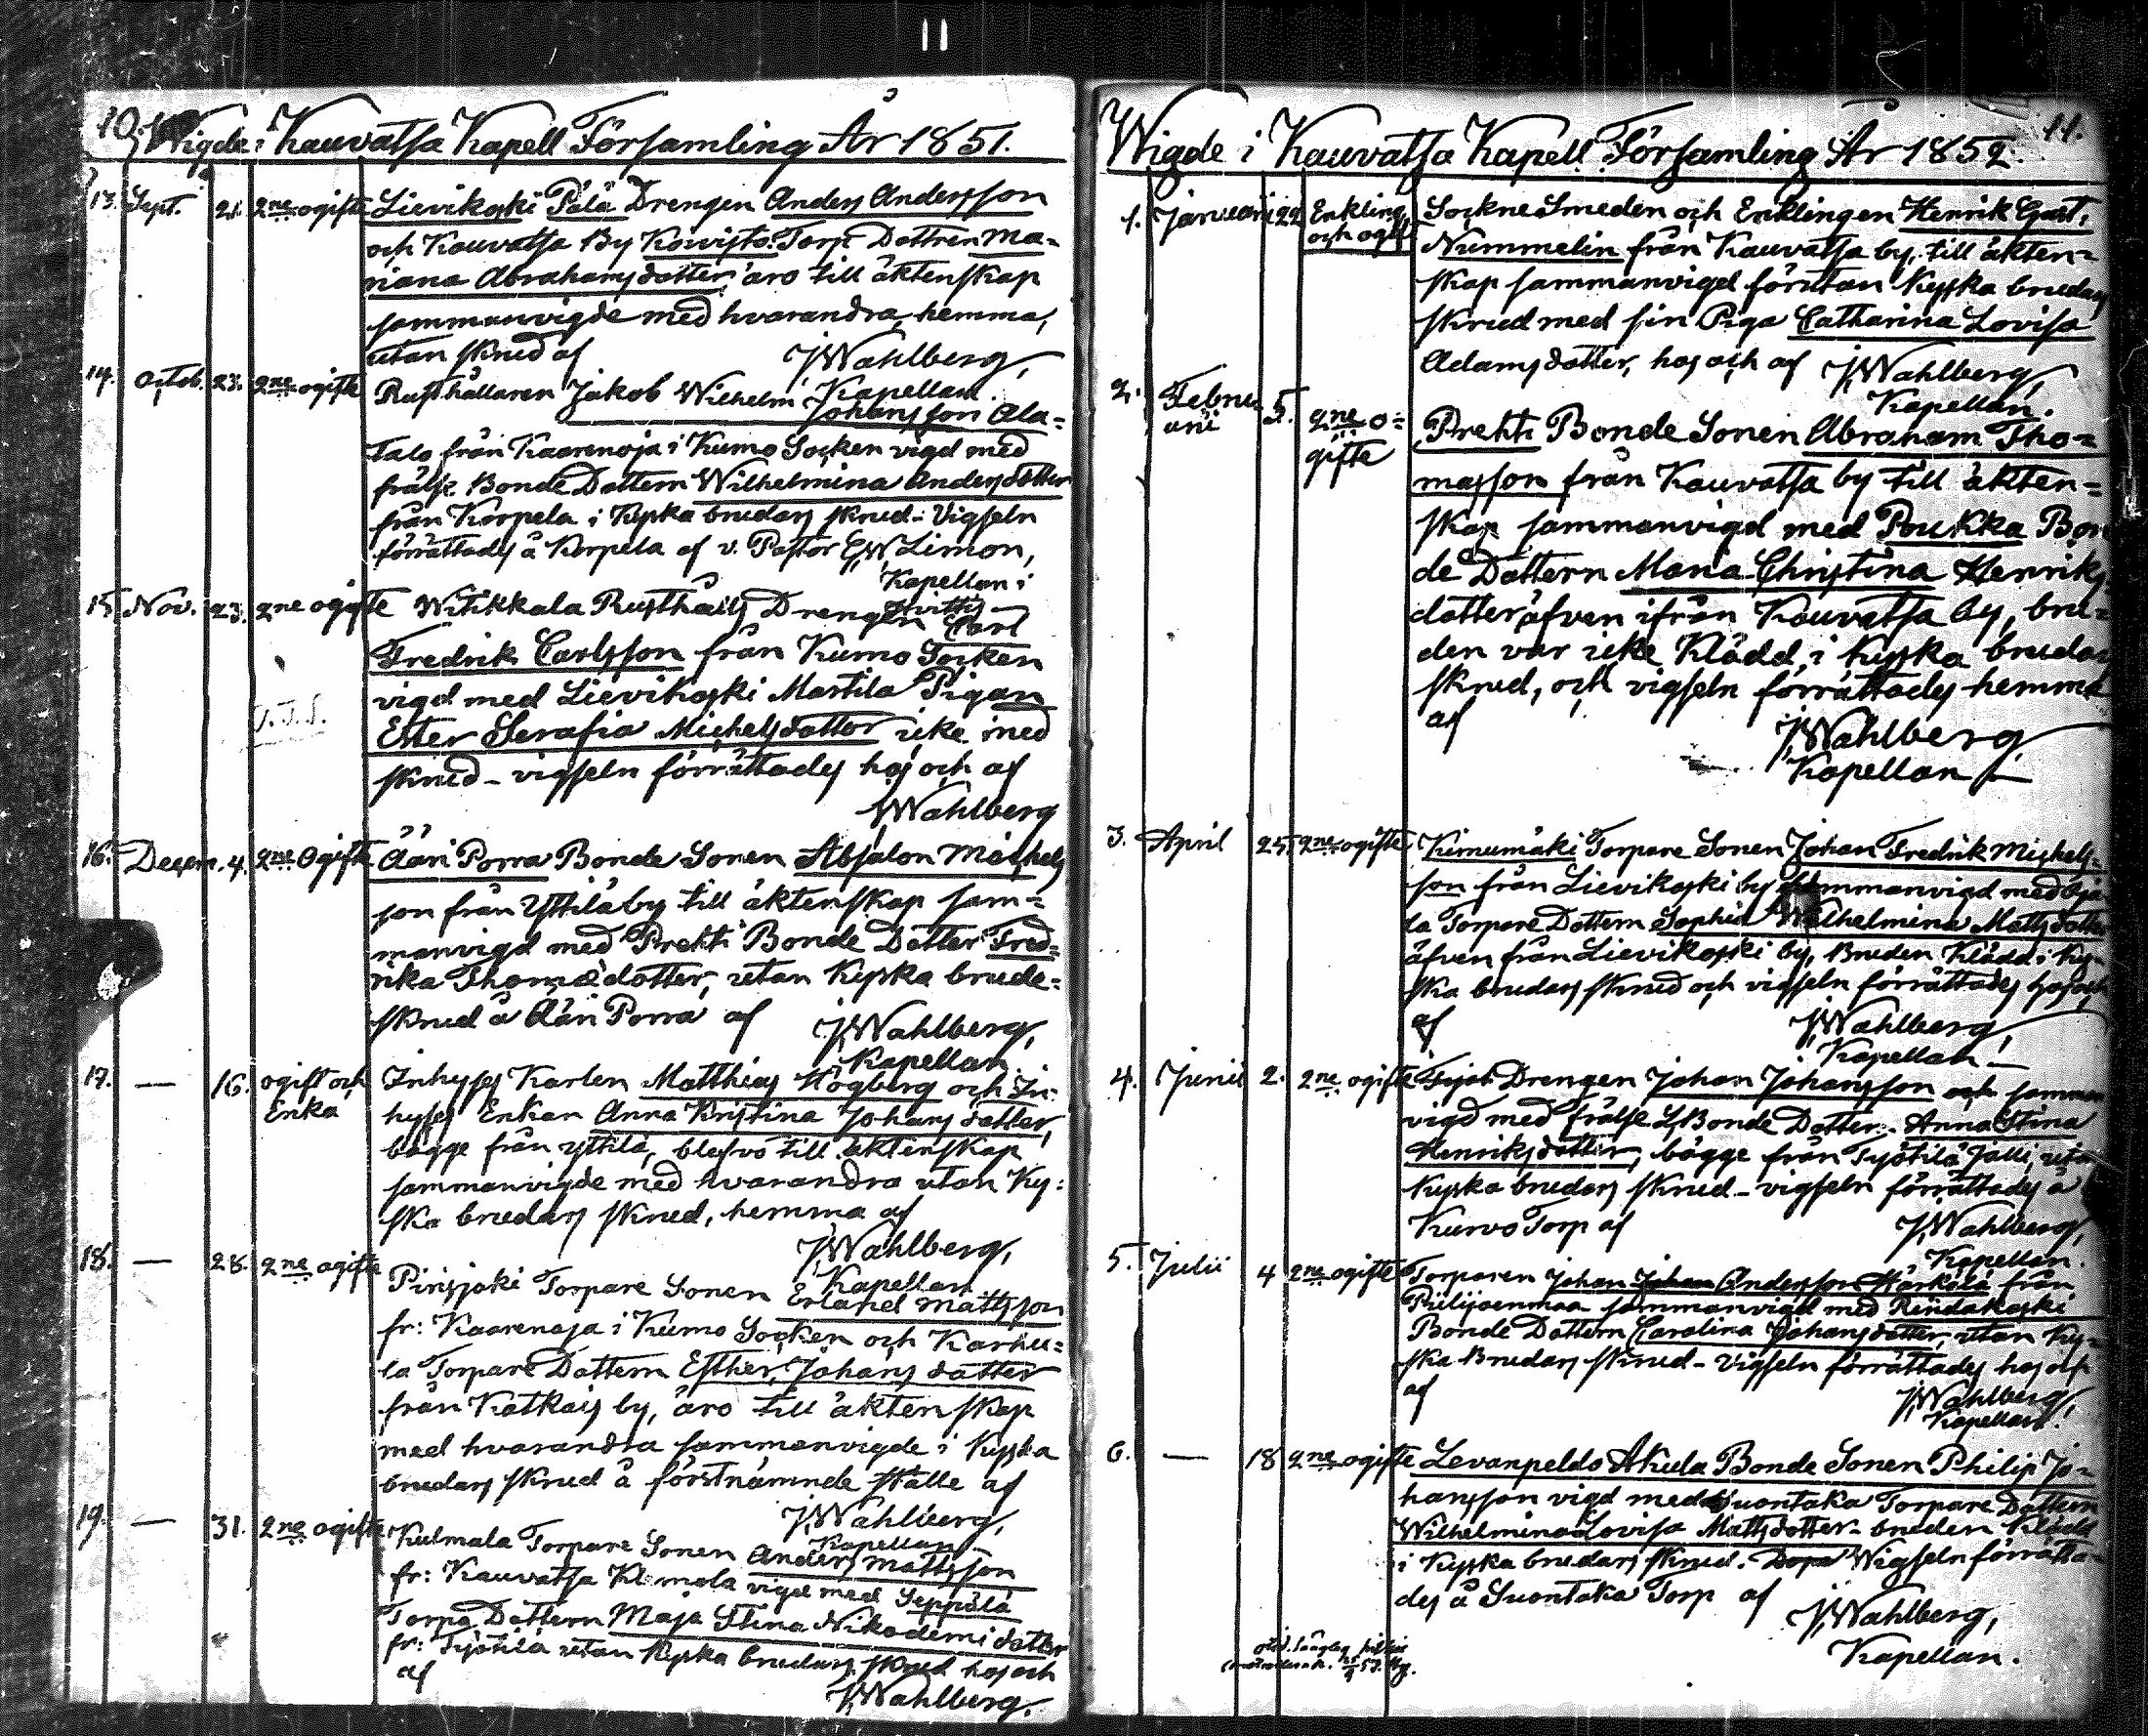 10.
Wigde i Kauvatsa Kapell Församling År 1851.
13. Sept. 21. 2ne ogifte Lievikoski Pälä Drengen Anders Andersson
och Kauvatsa By Koivisto Torp Dottren Ma-
riana Abrahamsdotter äro till äktenskap
sammanvigde med hvarandra, hemma,
utan skrud af JWahlberg,
Kapellan.
14. Octob. 23. 2ne ogifte Rusthållaren Jakob Wilhelm
Johansson Ala=
talo från Kaarenoja i Kumo Socken vigd med
frälse Bonde Dottern Wilhelmina Andersdotter
från Korpela i Kyska brudars skrud. Vigseln
förrättades å Korpela af v. Pastor EWLimon,
Kapellan i
Hvittis
15. Nov. 23. 2ne ogifte Witikkala Rusthålls Drengen Carl
Fredrik Carlsson från Kumo Socken
vigd med Lievikoski Mattila Pigan
Ester Serafia Michelsdotter icke med
skrud - vigseln förrättades hos och af
JWahlberg
16. Decem. 4. 2ne Ogifte Ääri Porra Bonde Sonen Absalon Michels
son från Yttilä by till äktenskap sam=
manvigd med Prekti Bonde Dotter Fred=
rika Thomædotter, utan Kyska brude=
skrud å Ääri Porra af JWahlberg,
Kapellan.
17. — 16. ogift och Enka Inhyses Karlen Matthias Högberg och In-
hyses Enkan Anna Kristina Johans dotter,
bägge från Yttilä, blefvo till äktenskap
sammanvigde med hvarandra utan Ky=
ska brudars skrud, hemma af
JWahlberg,
Kapellan
18. — 28. 2ne ogifte Pirisjoki Torpare Sonen Erland Mattsson
fr: Kaarenoja i Kumo Socken och Karhu=
la Torpare Dottern Esther Johans dotter
från Katkais by, äro till äktenskap
med hvarandra sammanvigde i Kyska
brudars skrud å förstnämnde ställe af
JWahlberg,
Kapellan
19. — 31. 2ne ogifte Kulmala Torpare Sonen Anders Mattsson
fr: Kauvatsa vigd med Seppälä
Torpa Dottern Maja Stina Nikodemi dotter
fr: Työtilä utan Kyska brudars skrud hos och
af
JWahlberg.
11.
Wigde i Kauvatsa Kapell Församling År 1852.
1. Januari 22 Enkling och ogift SockneSmeden och Enklingen Henrik Gust.
Nummelin från Kauvatsa by, till äkten=
skap sammanvigd förutan Kyska brudars
skrud med sin Piga Catharina Lovisa
Adamsdotter, hos och af JWahlberg,
Kapellan.
2. Februarii 5. 2ne o=gifte Prekti Bonde Sonen Abraham Tho=
masson från Kauvatsa by till äkten=
skap sammanvigd med Poukka Bon
de Dottern Maria Christina Henriks
dotter äfven ifrån Kauvatsa by, bru=
den var icke Klädd i kyska brudars
skrud, och vigseln förrättades hemma
af
JWahlberg
Kapellan
3. April 25. 2ne ogifte Kirnumäki Torpare Sonen Johan Fredrik Michels=
son från Lievikoski by sammanvigd med Oja
la Torpare Dottern Sophia Wilhelmina Mattsdotter
äfven från Lievikoski by, Bruden Klädd i Ky=
ska brudars skrud och vigseln förrättades hos och
af JWahlberg,
Kapellan
4. Junii 2. 2ne ogifte Drengen Johan Johansson och samman
vigd med frälse Bonde Dotter Anna Stina
Henriksdotter, bägge från Työtilä Jalli, utan
Kyska brudars skrud - vigseln förrättades å
Kurvo Torp af JWahlberg,
Kapellan.
5. Julii 4 2ne ogifte Torparen Johan Johan Andersson Härkälä från
Piilijoenmaa sammanvigd med Rindakoski
Bonde Dottern Carolina Johansdotter, utan Ky=
ska Brudars skrud - Vigseln förrättades hos och
af
JWahlberg,
Kapellan.
6. — 18 2ne ogifte Levanpeldo Akula Bonde Sonen Philip Jo=
hansson vigd med Suontaka Torpare Dottern
Wilhelmina Lovisa Mattsdotter - bruden Klädd
i Kyska brudars skrud. Wigseln förrätta-
des å Suontaka Torp af JWahlberg,
Kapellan.